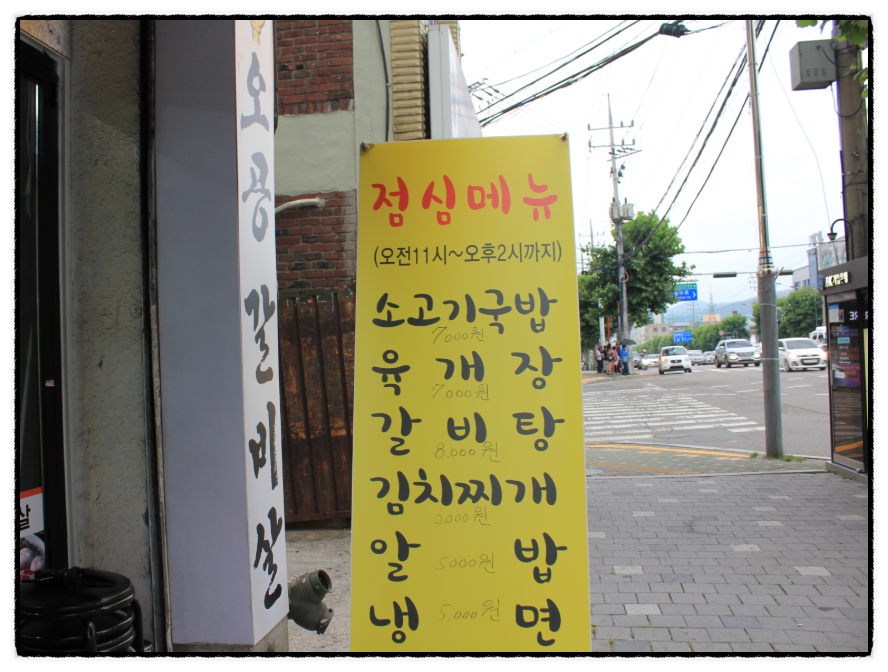 오공갈비살
점심메뉴
(오전11시~오후2시까지)
소고기국밥
7000원
육개장
7,000원
갈비탕
8,000원
김치찌개
알밥
5000원
냉면
5,000원
살